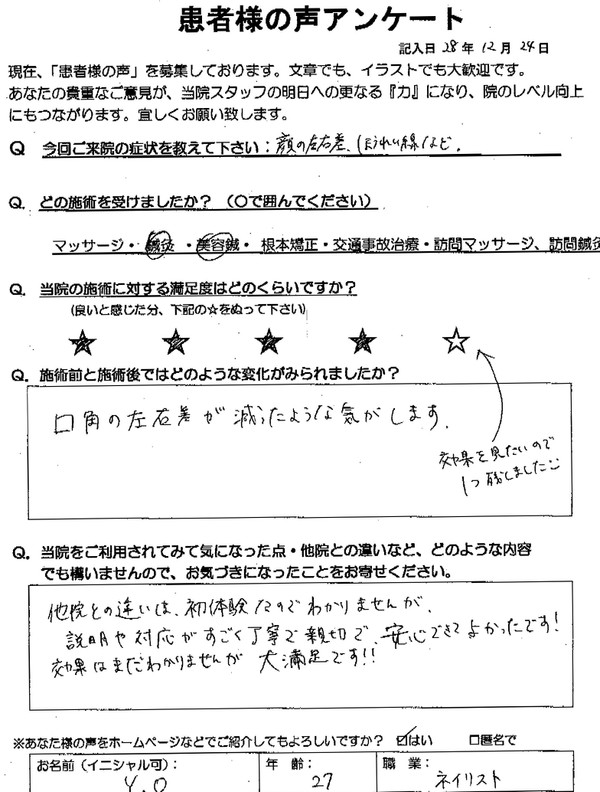 患者様の声アンケート
記入日 28年 12月 24日
現在、「患者様の声」を募集しております。文章でも、イラストでも大歓迎です。
あなたの貴重なご意見が、当院スタッフの明日への更なる『力』になり、院のレベル向上
にもつながります。宜しくお願い致します。
Q 今回ご来院の症状を教えて下さい：顔の左右差、ほうれい線など。
Q. どの施術を受けましたか？（〇で囲んでください）
マッサージ・鍼灸・美容鍼・根本矯正・交通事故治療・訪問マッサージ、訪問鍼灸
Q. 当院の施術に対する満足度はどのくらいですか？
(良いと感じた分、下記の☆をぬって下さい)
★ ★ ★ ★ ☆
Q. 施術前と施術後ではどのような変化がみられましたか？
口角の左右差が減ったような気がします。
効果を見たいので
1つ残しました
Q. 当院をご利用されてみて気になった点・他院との違いなど、どのような内容
でも構いませんので、お気づきになったことをお寄せください。
他院との違いは、初体験なのでわかりませんが、
説明や対応がすごく丁寧で親切で、安心できてよかったです！
効果はまだわかりませんが 大満足です!!
※あなた様の声をホームページなどでご紹介してもよろしいですか？ ☑はい □匿名で
お名前（イニシャル可）： 年 齢： 職 業：
Y.O 27 ネイリスト